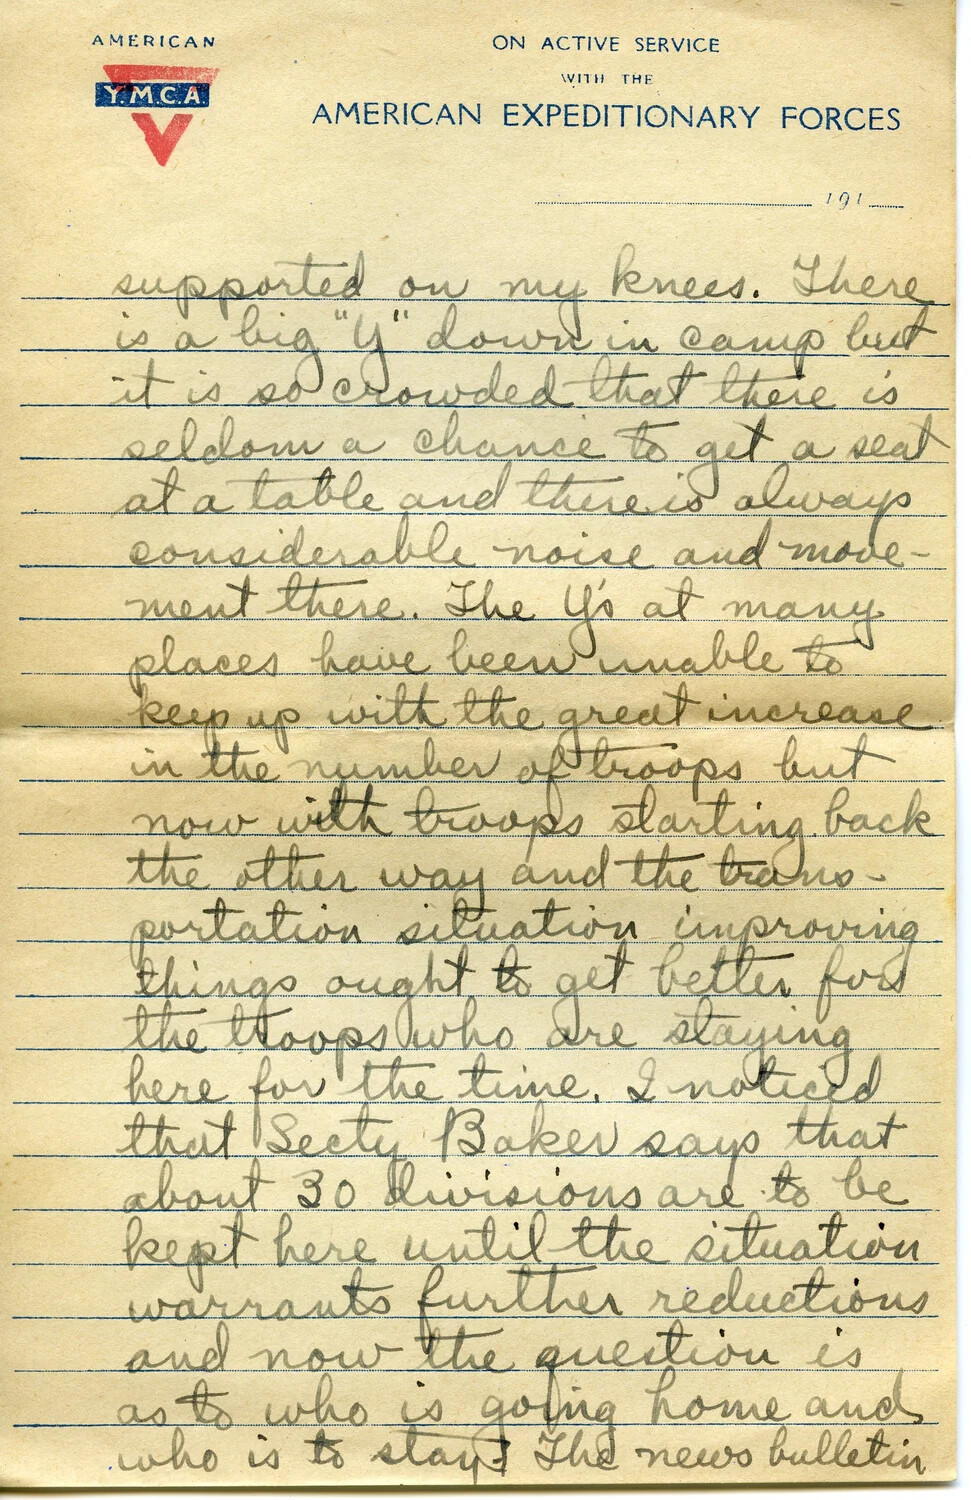 AMERICAN
Y.M.C.A
ON ACTIVE SERVICE
WITH THE
AMERICAN EXPEDITIONARY FORCES
191
supported on my knees. There
is a big "Y" down in camp but
it is so crowded that there is
seldom a chance to get a seat
at a table and there is always
considerable noise and move-
ment there. The Y's at many
places have been unable to
keep up with the great increase
in the number of troops but
now with troops starting back
the other way and the trans-
portation situation improving
things ought to get better for
the troops who are staying
here for the time. I noticed
that Secty Baker says that
about 30 divisions are to be
kept here until the situation
warrants further reductions
and now the question is
as to who is going home and
who is to stay? The news bulletin